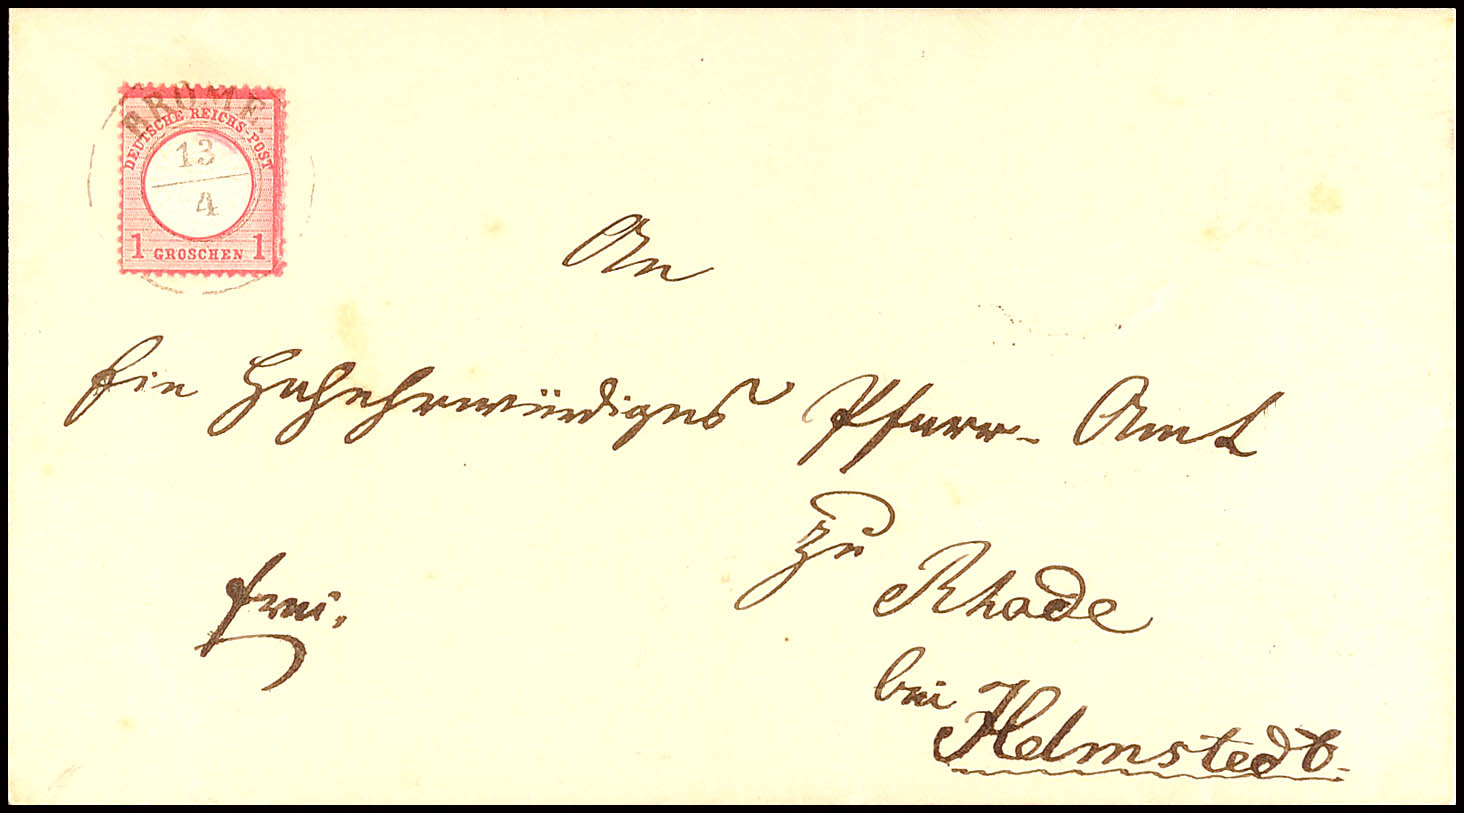 BROME.
DEUTSCHE REICHS-POST
13
4
1 GROSCHEN 1
An
Ein Hochehrwürdiges Pfarr-Amt
zu Rhode
bei Helmstedt.
frei.